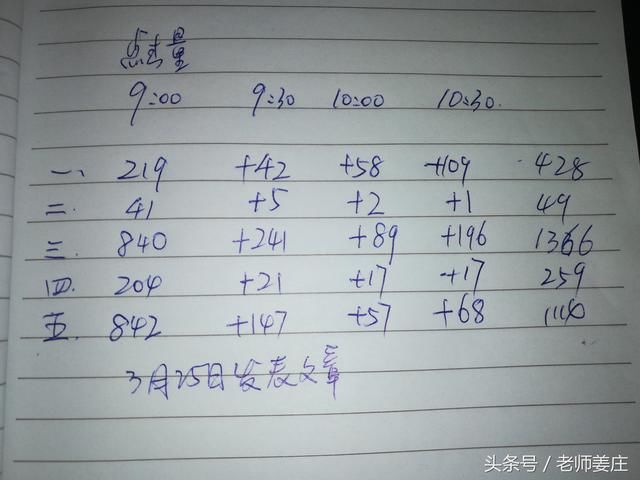 点击量
9:00 9:30 10:00 10:30.
一、 219 +42 +58 +109 428
二、 41 +5 +2 +1 49
三、 840 +241 +89 +196 1366
四、 204 +21 +17 +17 259
五、 842 +147 +57 +68 1114
3月25日发表文章
头条号／老师姜庄